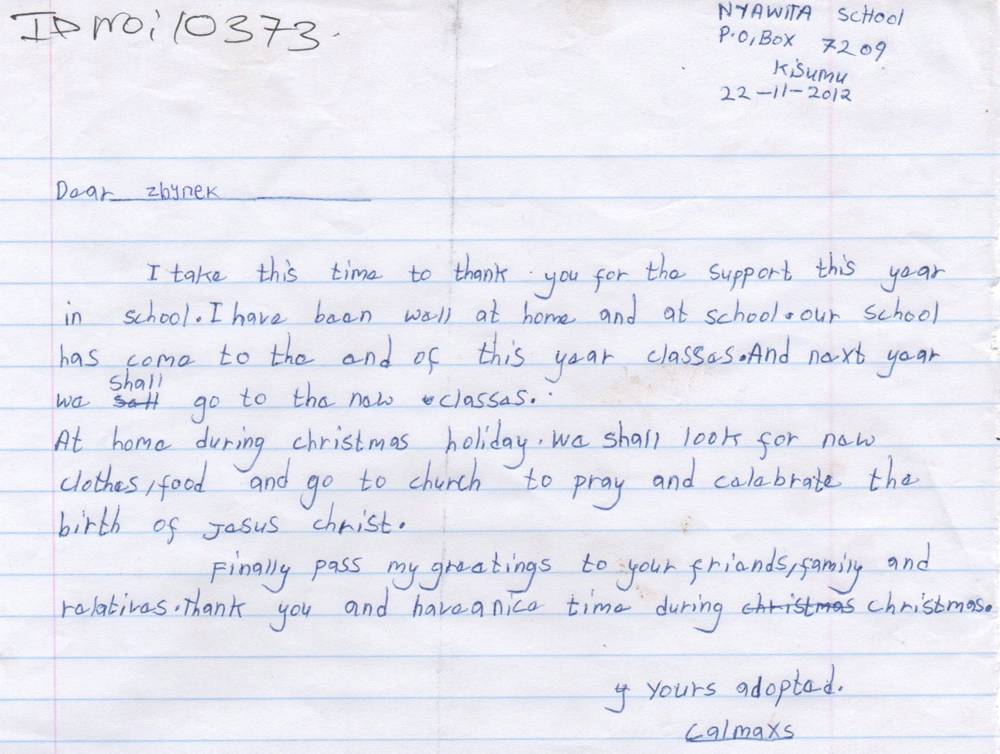 ID NO: 10373.
NYAWITA SCHOOL
P.O, BOX 7209
KISUMU
22-11-2012
Dear zbynek
I take this time to thank you for the support this year
in school. I have been well at home and at school. our school
has come to the end of this year classes. And next year
we sall shall go to the new classes.
At home during christmas holiday. we shall look for new
clothes, food and go to church to pray and celebrate the
birth of Jesus christ.
Finally pass my greetings to your friends, family and
relatives. Thank you and have a nice time during christmas christmas.
y yours adopted.
Calmaxs